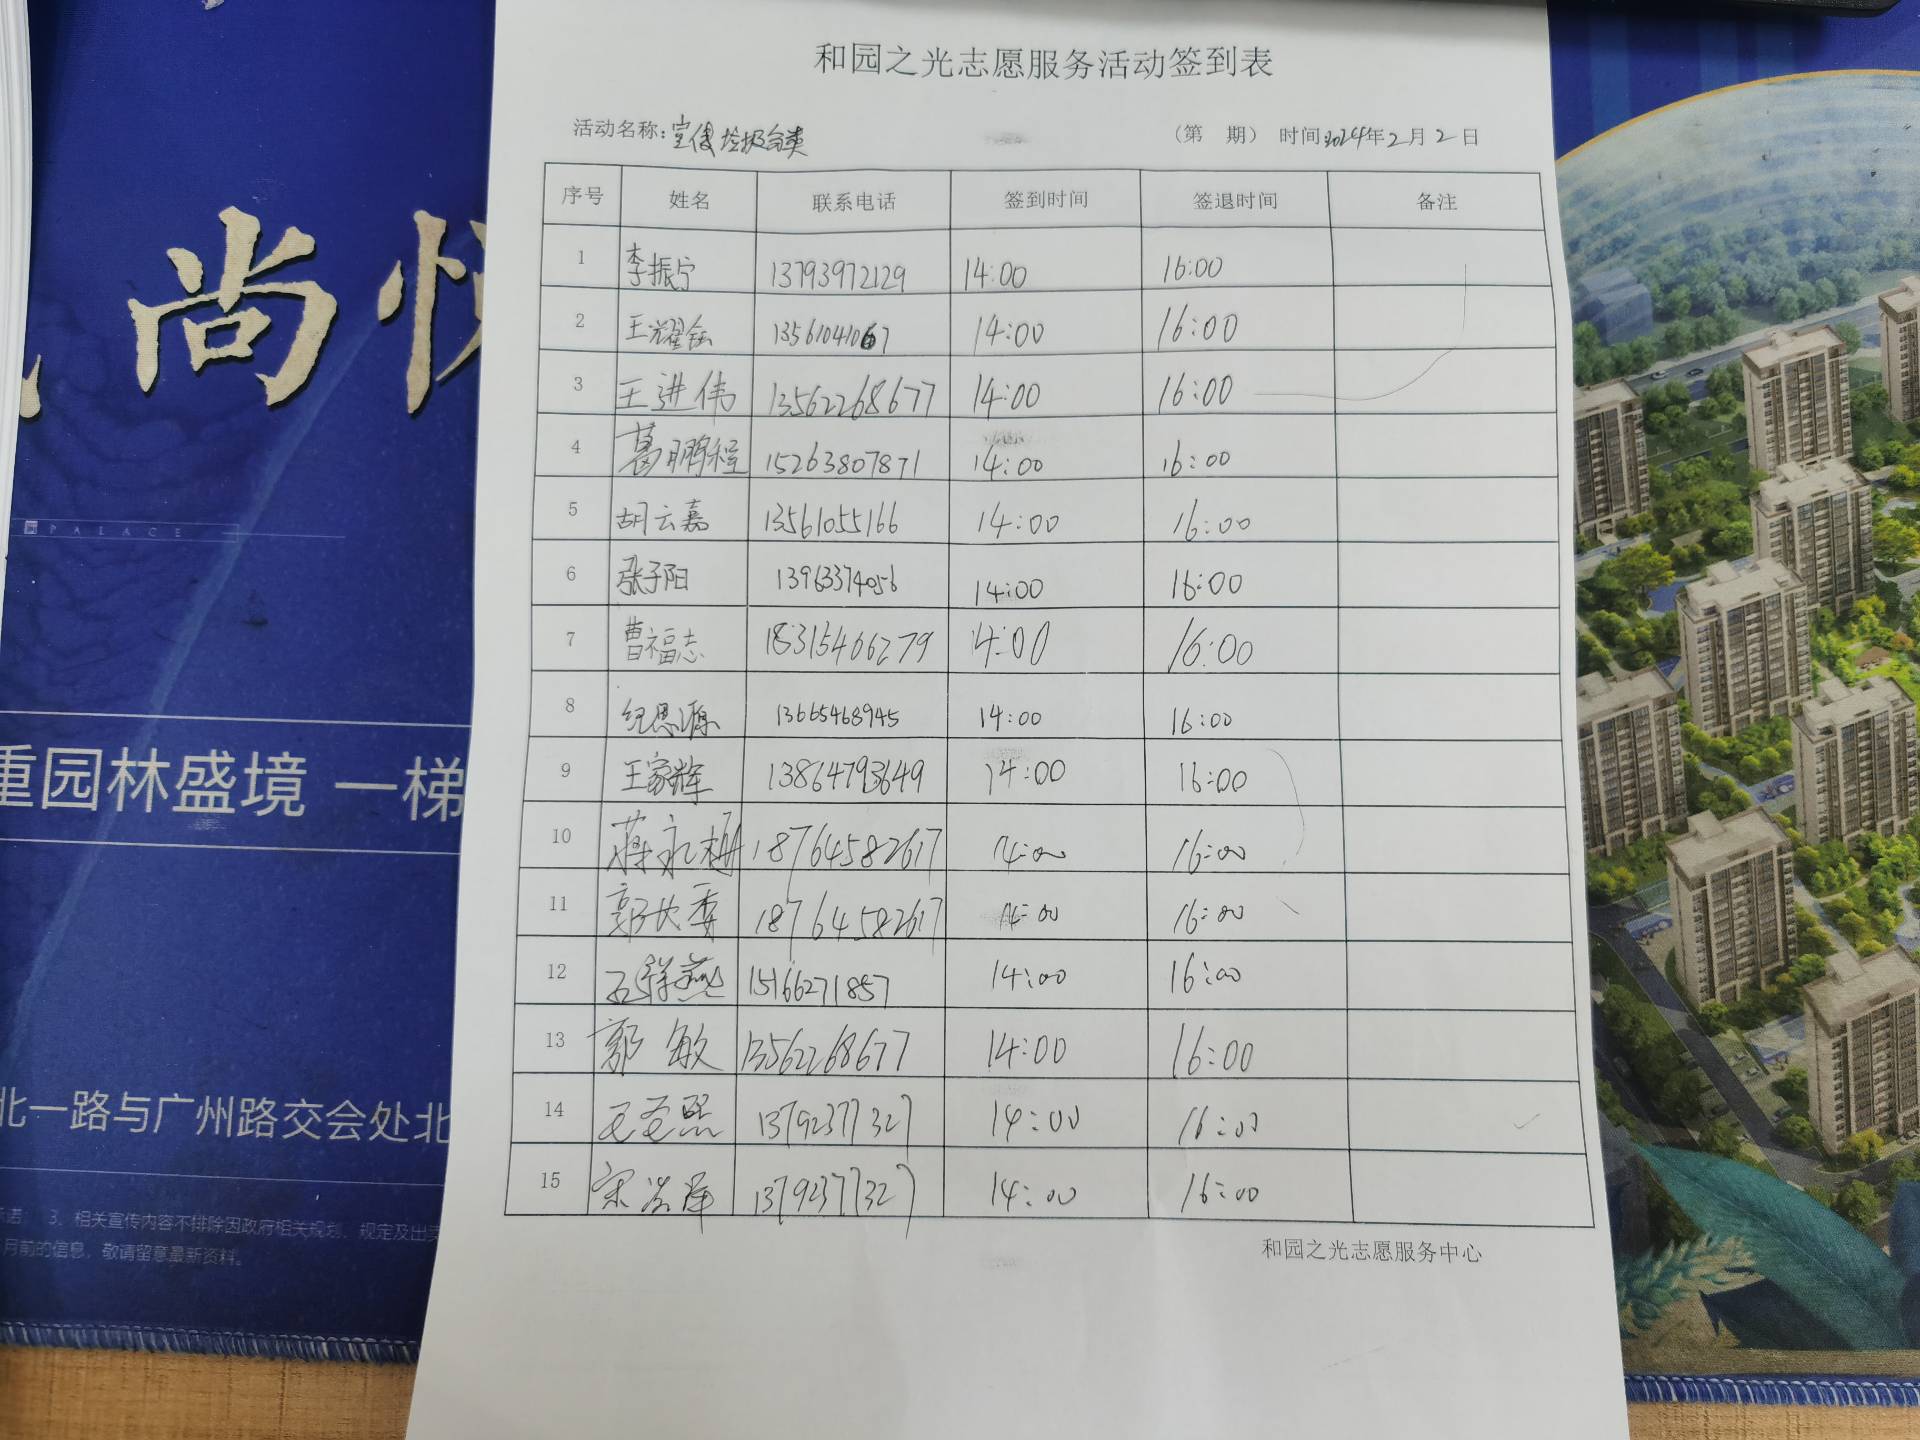 和园之光志愿服务活动签到表
活动名称:宣传垃圾分类 (第 期) 时间2024年2月2日
序号 姓名 联系电话 签到时间 签退时间 备注
1 李振宁 13793972129 14:00 16:00
2 王耀 13561041067 14:00 16:00
3 王进伟 13562268677 14:00 16:00
4 葛鹏程 15263807871 14:00 16:00
5 胡云嘉 13561055166 14:00 16:00
6 张子阳 13963374056 14:00 16:00
7 曹福志 18315466279 14:00 16:00
8 纪思源 13665468945 14:00 16:00
9 王家辉 13864793649 14:00 16:00
10 蒋永梅 18764582617 14:00 16:00
11 郭长委 18764582617 14:00 16:00
12 石祥燕 15166271857 14:00 16:00
13 郭敏 13562268677 14:00 16:00
14 13792377327 14:00 16:00
15 宋浩泽 13792377327 14:00 16:00
和园之光志愿服务中心
尚悦
PALACE
重园林盛境 一梯
北一路与广州路交会处北
诺 3、相关宣传内容不排除因政府相关规划、规定及出卖
月前的信息,敬请留意最新资料。